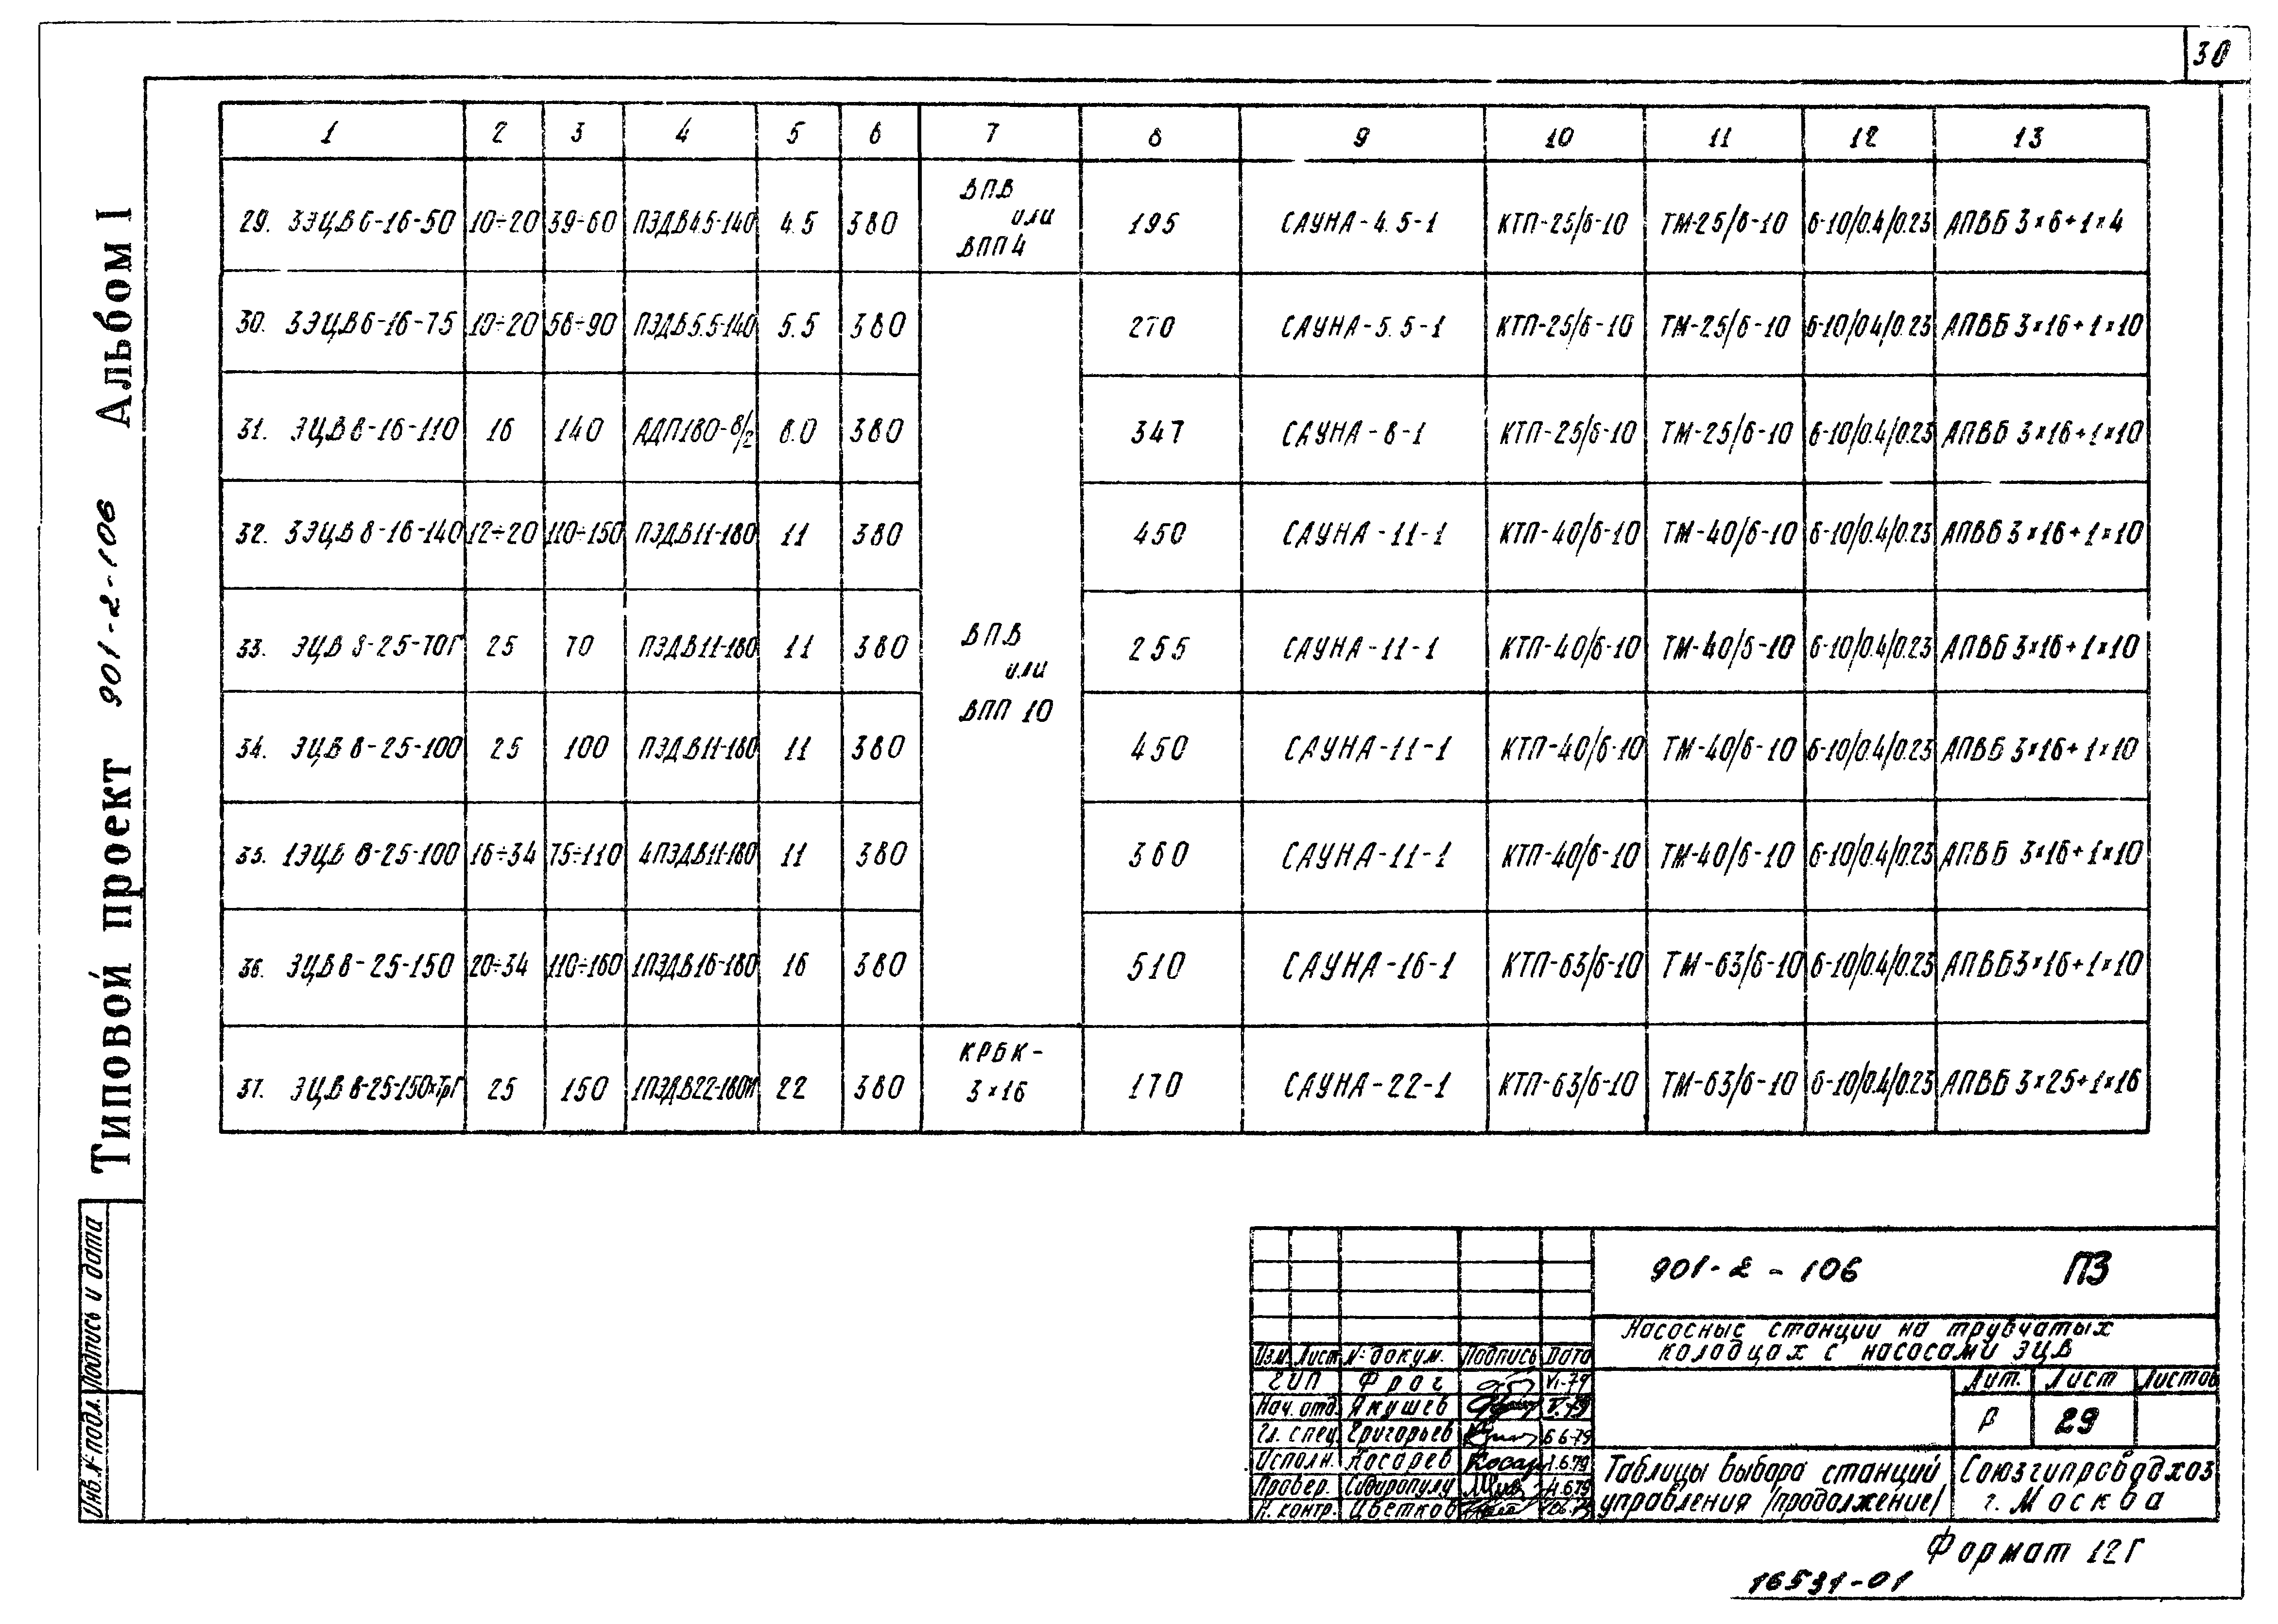 30
Типовой проект 901-2-106 Альбом I
1 2 3 4 5 6 7 8 9 10 11 12 13
29. 3ЭЦВ6-16-50 10÷20 39-60 ПЭДВ4.5-140 4.5 380 ВПВ или ВПП4 195 САУНА-4.5-1 КТП-25/6-10 ТМ-25/6-10 6-10/0.4/0.23 АПВБ 3×6+1×4
30. 3ЭЦВ6-16-75 10÷20 56÷90 ПЭДВ5.5-140 5.5 380 270 САУНА-5.5-1 КТП-25/6-10 ТМ-25/6-10 6-10/0.4/0.23 АПВБ 3×16+1×10
31. ЭЦВ8-16-110 16 140 АДП180-8/2 8.0 380 347 САУНА-8-1 КТП-25/6-10 ТМ-25/6-10 6-10/0.4/0.23 АПВБ 3×16+1×10
32. 3ЭЦВ8-16-140 12÷20 110÷150 ПЭДВ11-180 11 380 450 САУНА-11-1 КТП-40/6-10 ТМ-40/6-10 6-10/0.4/0.23 АПВБ 3×16+1×10
33. ЭЦВ 8-25-70Г 25 70 ПЭДВ11-180 11 380 ВПВ или ВПП 10 255 САУНА-11-1 КТП-40/6-10 ТМ-40/6-10 6-10/0.4/0.23 АПВБ 3×16+1×10
34. ЭЦВ 8-25-100 25 100 ПЭДВ11-180 11 380 450 САУНА-11-1 КТП-40/6-10 ТМ-40/6-10 6-10/0.4/0.23 АПВБ 3×16+1×10
35. 1ЭЦВ 8-25-100 16÷34 75÷110 4ПЭДВ11-180 11 380 360 САУНА-11-1 КТП-40/6-10 ТМ-40/6-10 6-10/0.4/0.23 АПВБ 3×16+1×10
36. ЭЦВ8-25-150 20÷34 110÷160 1ПЭДВ16-180 16 380 510 САУНА-16-1 КТП-63/6-10 ТМ-63/6-10 6-10/0.4/0.23 АПВБ3×16+1×10
37. ЭЦВ8-25-150хТрГ 25 150 1ПЭДВ22-180И 22 380 КРБК-3×16 170 САУНА-22-1 КТП-63/6-10 ТМ-63/6-10 6-10/0.4/0.23 АПВБ 3×25+1×16
Инв.№подл. Подпись и дата
901-2-106 ПЗ
Насосные станции на трубчатых
колодцах с насосами ЭЦВ
Изм. Лист № докум. Подпись Дата
ГИП Фрог VI-79
Нач. отд. Якушев V.79
Гл. спец. Григорьев 6.6-79
Исполн. Косарев 1.6.79
Провер. Сидиропулу 4.6.79
Н. контр. Цветков
Лит. Лист Листов
Р 29
Таблицы выбора станций
управления /продолжение/
Союзгипроводхоз
г. Москва
Формат 12Г
16531-01